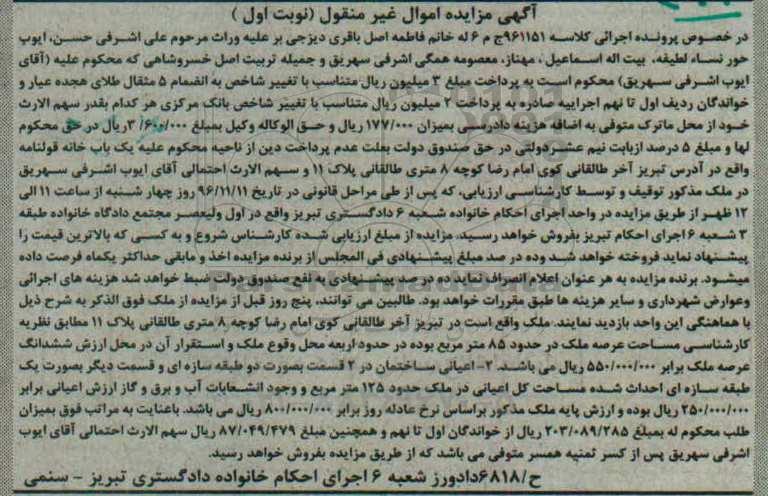 آگهی مزایده اموال غیر منقول (نوبت اول )
در خصوص پرونده اجرائی کلاسه ۹۶۱۱۵۱ج م ۶ له خانم فاطمه اصل باقری دیزجی بر علیه وراث مرحوم علی اشرفی حسن، ایوب
حور نساء لطیفه، بیت اله اسماعیل ، مهناز، معصومه همگی اشرفی سهریق و جمیله تربیت اصل خسروشاهی که محکوم علیه (آقای
ایوب اشرفی سهریق) محکوم است به پرداخت مبلغ ۳ میلیون ریال متناسب با تغییر شاخص به انضمام ۵ مثقال طلای هجده عیار و
خواندگان ردیف اول تا نهم اجراییه صادره به پرداخت ۲ میلیون ریال متناسب با تغییر شاخص بانک مرکزی هر کدام بقدر سهم الارث
خود از محل ماترک متوفی به اضافه هزینه دادرسی بمیزان ۱۷۷/۰۰۰ ریال و حق الوکاله وکیل بمبلغ ۳/۶۰۰/۰۰۰ریال در حق محکوم
لها و مبلغ ۵ درصد ازبابت نیم عشردولتی در حق صندوق دولت بعلت عدم پرداخت دین از ناحیه محکوم علیه یک باب خانه قولنامه
واقع در آدرس تبریز آخر طالقانی کوی امام رضا کوچه ۸ متری طالقانی پلاک ۱۱ و سهم الارث احتمالی آقای ایوب اشرفی سهریق
در ملک مذکور توقیف و توسط کارشناسی ارزیابی، که پس از طی مراحل قانونی در تاریخ ۹۶/۱۱/۱۱ روز چهار شنبه از ساعت ۱۱ الی
۱۲ ظهر از طریق مزایده در واحد اجرای احکام خانواده شعبه ۶ دادگستری تبریز واقع در اول ولیعصر مجتمع دادگاه خانواده طبقه
۳ شعبه ۶ اجرای احکام تبریز بفروش خواهد رسید. مزایده از مبلغ ارزیابی شده کارشناس شروع و به کسی که بالاترین قیمت را
پیشنهاد نماید فروخته خواهد شد وده در صد مبلغ پیشنهادی فی المجلس از برنده مزایده اخذ و مابقی حداکثر یکماه فرصت داده
میشود. برنده مزایده به هر عنوان اعلام انصراف نماید ده در صد پیشنهادی به نفع صندوق دولت ضبط خواهد شد هزینه های اجرائی
وعوارض شهرداری و سایر هزینه ها طبق مقررات خواهد بود. طالبین می توانند، پنج روز قبل از مزایده از ملک فوق الذکر به شرح ذیل
با هماهنگی این واحد بازدید نمایند. ملک واقع است در تبریز آخر طالقانی کوی امام رضا کوچه ۸ متری طالقانی پلاک ۱۱ مطابق نظریه
کارشناسی مساحت عرصه ملک در حدود ۸۵ متر مربع بوده در حدود اربعه محل وقوع ملک و استقرار آن در محل ارزش ششدانگ
عرصه ملک برابر ۵۵۰/۰۰۰/۰۰۰ ریال می باشد. ۲- اعیانی ساختمان در ۲ قسمت بصورت دو طبقه سازه ای و قسمت دیگر بصورت یک
طبقه سازه ای احداث شده مساحت کل اعیانی در ملک حدود ۱۲۵ متر مربع و وجود انشعابات آب و برق و گاز ارزش اعیانی برابر
۲۵۰/۰۰۰/۰۰۰ ریال بوده و ارزش پایه ملک مذکور براساس نرخ عادله روز برابر ۸۰۰/۰۰۰/۰۰۰ ریال می باشد. باعنایت به مراتب فوق بمیزان
طلب محکوم له بمبلغ ۲۰۳/۰۸۹/۲۸۵ ریال از خواندگان اول تا نهم و همچنین مبلغ ۸۷/۰۴۹/۴۷۹ ریال سهم الارث احتمالی آقای ایوب
اشرفی سهریق پس از کسر ثمنیه همسر متوفی می باشد که از طریق مزایده بفروش خواهد رسید.
ح/۶۸۱۸دادورز شعبه ۶ اجرای احکام خانواده دادگستری تبریز - سنمی